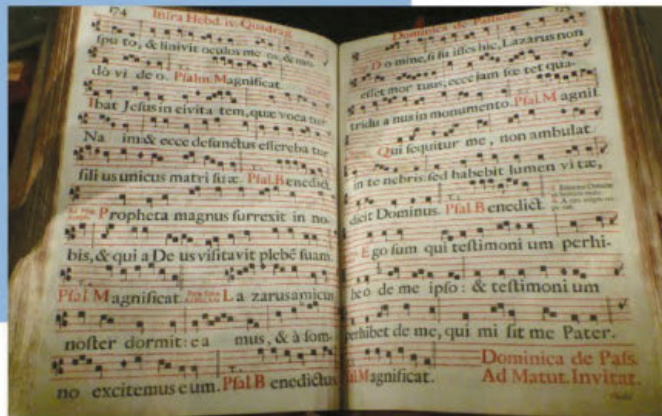 174
Infra Hebd. iv. Quadrag
sputo, & linivit oculos me os, & mo-
do vi de o. Psalm. Magnificat.
Ibat Jesus in civita tem, quæ voca tur
Na im & ecce defunctus efferebatur
fili us unicus matri suæ. Psal. B enedict.
Propheta magnus surrexit in no-
bis, & qui a De us visitavit plebē suam.
Psal. Magnificat. La zarus amicus
noster dormit: e a mus, & à som-
no excitemus e um. Psal. B enedictus
Dominica de Passione
Do mine, si fu isses hic, Lazarus non
esset mor tuus; ecce jam fœ tet qua-
tridu a nus in monumento. Psal. M agnif.
Qui sequitur me, non ambulat
in te nebris: sed habebit lumen vi tæ,
dicit Dominus. Psal. B enedict.
Ego sum qui testimoni um perhi-
be o de me ipso: & testimoni um
perhibet de me, qui mi sit me Pater.
Psal. Magnificat.
Dominica de Pass.
Ad Matut. Invitat.